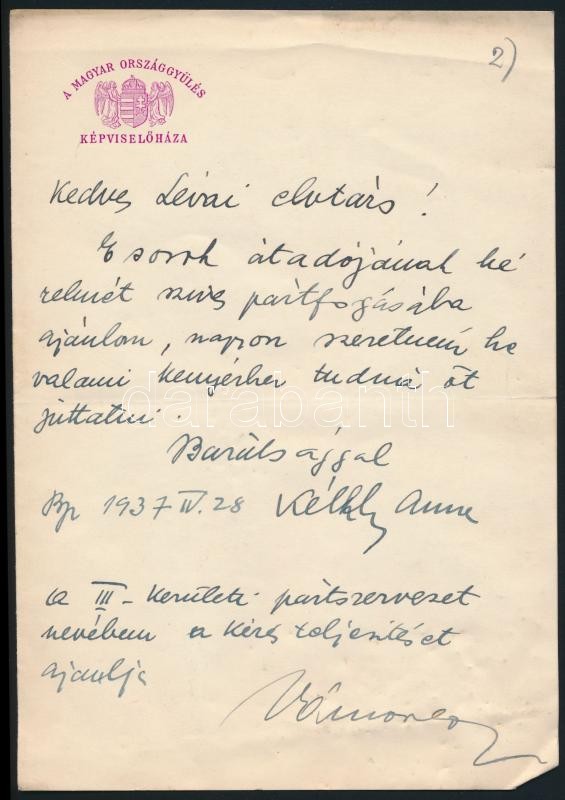 2)
A MAGYAR ORSZÁGGYÜLÉS
KÉPVISELŐHÁZA
Kedves Lévai elvtárs!
E sorok átadójának ké
relmét szives pártfogásába
ajánlom, nagyon szeretném ha
valami kenyérhez tudná őt
juttatni.
Barátsággal
Bp 1937 IV. 28 Kéthly Anna
a III- kerületi pártszervezet
nevében a kérés teljesitését
ajánlja
darabanth